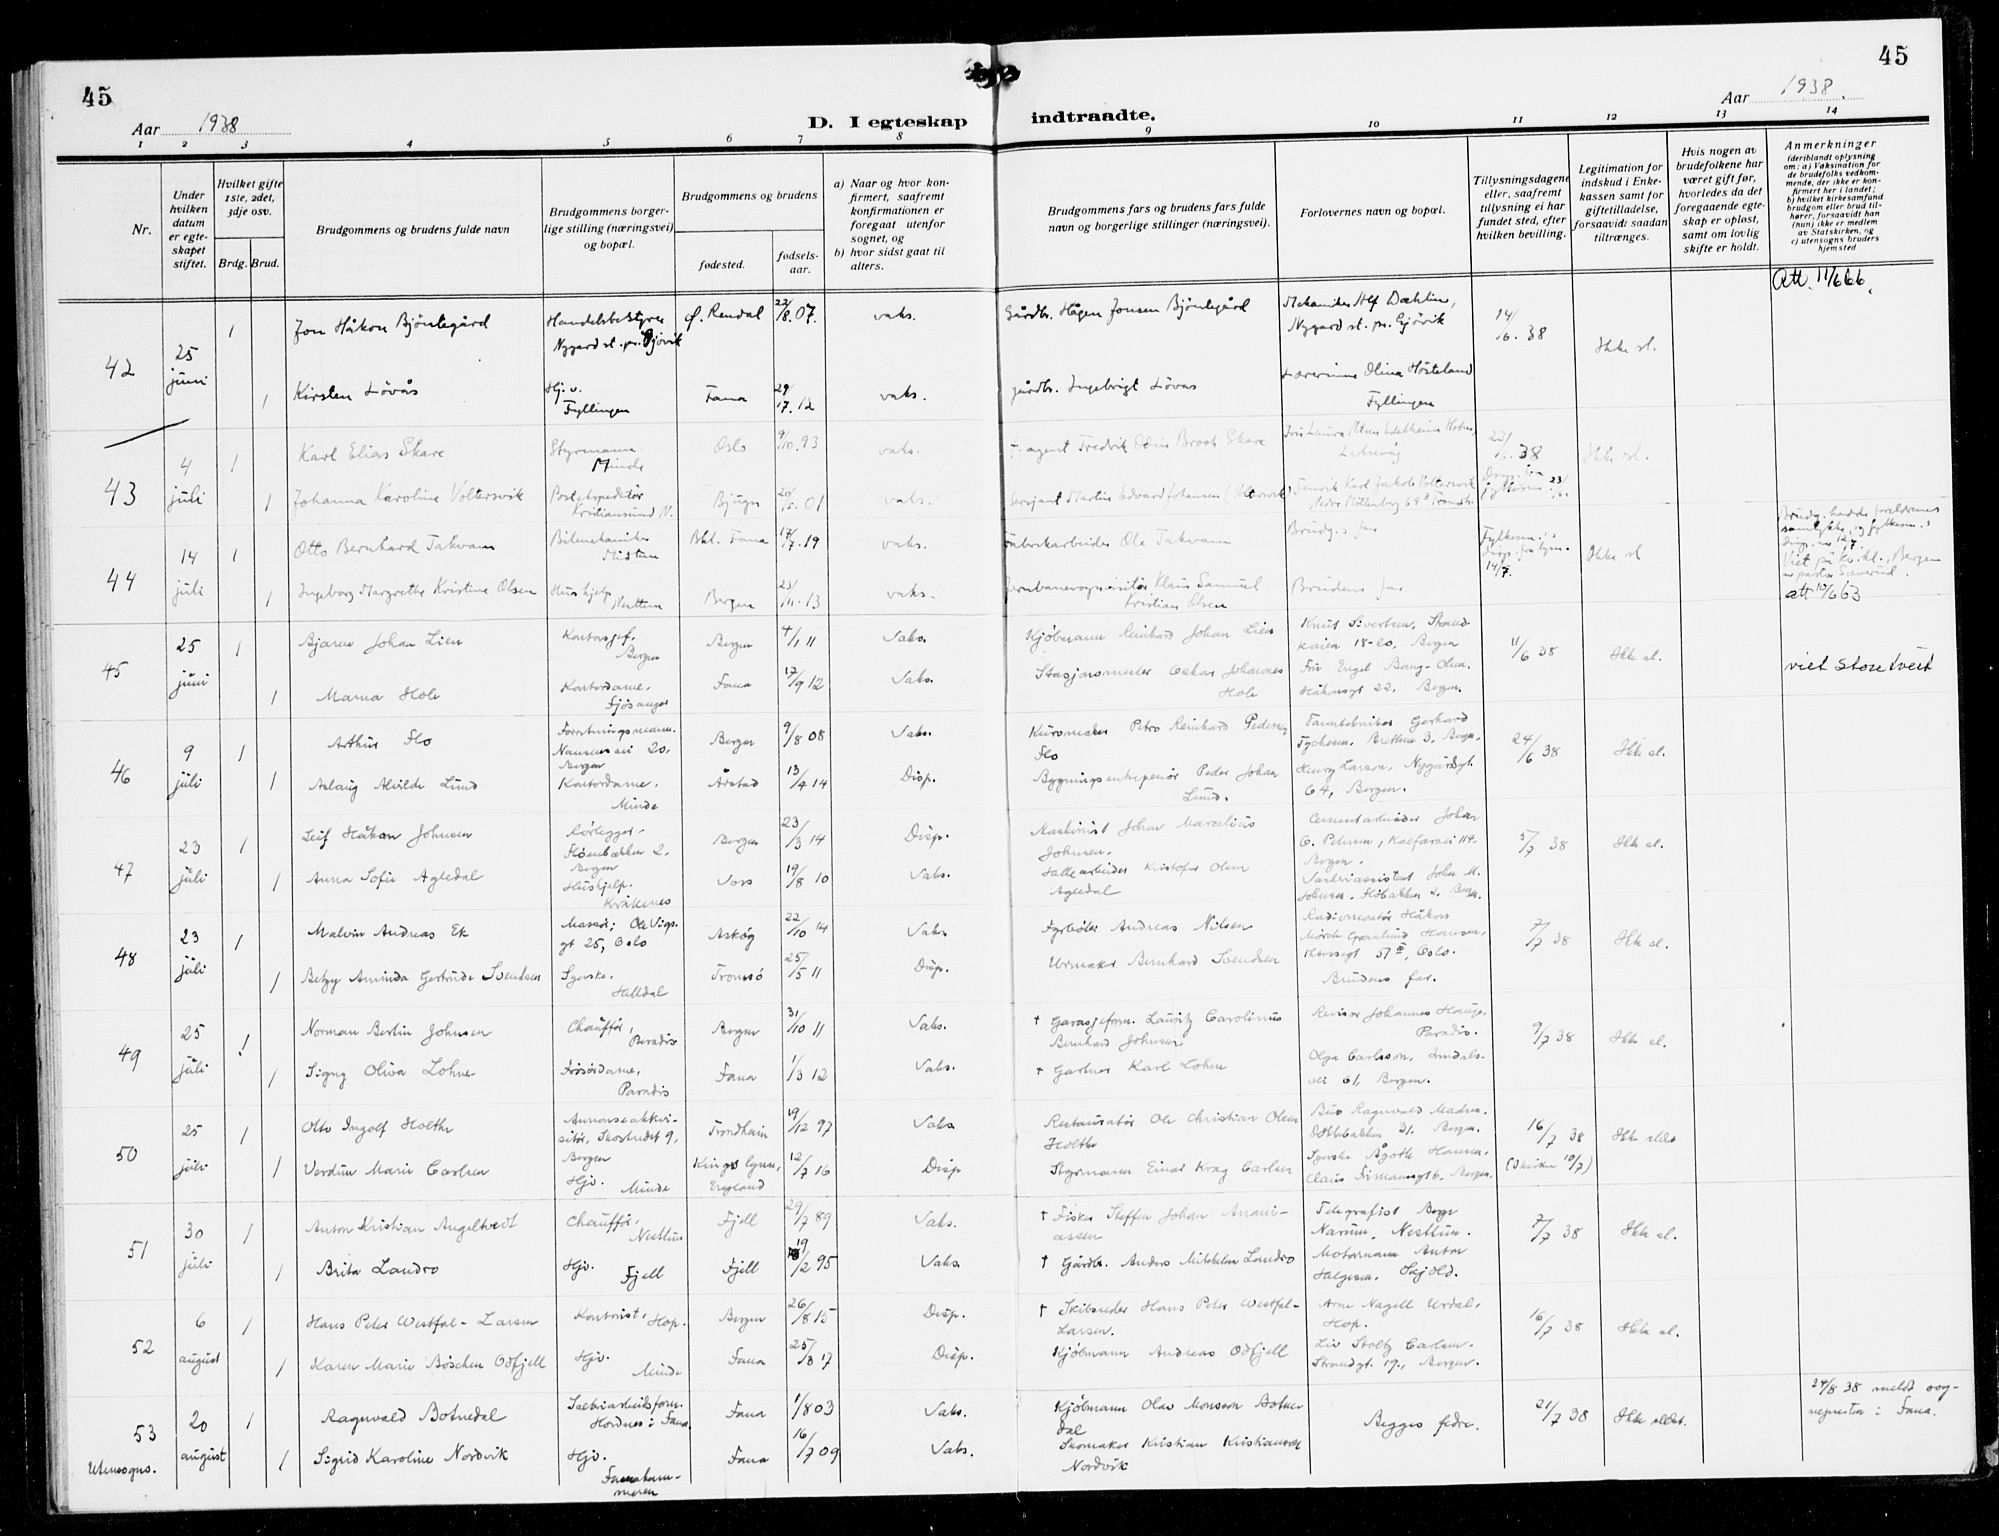 45
45
Aar 1938
D. I egteskap indtraadte.
Aar 1938.
1 2 3 4 5 6 7 8 9 10 11 12 13 14
Nr.
Under hvilken datum er egteskapet stiftet.
Hvilket gifte 1ste, 2det, 3dje osv.
Brdg. Brud.
Brudgommens og brudens fulde navn
Brudgommens borgerlige stilling (næringsvei) og bopæl.
Brudgommens og brudens
fødested.
fødselsaar.
a) Naar og hvor konfirmert, saafremt konfirmationen er foregaat utenfor sognet, og
b) hvor sidst gaat til alters.
Brudgommens fars og brudens fars fulde navn og borgerlige stillinger (næringsvei).
Forlovernes navn og bopæl.
Tillysningsdagene eller, saafremt tillysning ei har fundet sted, efter hvilken bevilling.
Legitimation for indskud i Enkekassen samt for giftetilladelse, forsaavidt saadan tiltrænges.
Hvis nogen av brudefolkene har været gift før, hvorledes da det foregaaende egteskap er opløst, samt om lovlig skifte er holdt.
Anmerkninger (deriblandt oplysning om: a) Vaksination for de brudefolks vedkommende, der ikke er konfirmert her i landet; b) hvilket kirkesamfund brudgom eller brud tilhører, forsaavidt han (hun) ikke er medlem av Statskirken, og c) utensogns bruders hjemsted
Att. 11/6 66.
42 25 juni 1 Jon Håkon Bjøntegård Handelsbestyrer Nygard st. pr. Gjøvik Ø. Rendal 22/8. 07. vaks. Gårdbr. Hågen Jonsen Bjøntegård Mekaniker Alf Dæhlin, Nygard st. pr. Gjøvik 14/6. 38 Ikke sl.
1 Kirsten Løvås Hj. v. Fyllingen Fana 29/ 12 vaks. gårdbr. Ingebrigt Løvås Lærerinne Olina Høsteland Fyllingen
43 4 juli 1 Karl Elias Skare Styrmann Minde Oslo 9/10. 93 vaks. † agent Fredrik Odin Brock Skare 38 Ikke sl.
1 Johanna Karoline Voltersvik Postekspeditør Kristiansund N. Bjugn 20/5. 01 vaks. Sersjant Martin Edvard Johansen (Voltersvik) Fenrik Karl Jakob Voltersvik
44 14 juli 1 Otto Bernhard Takvam Bilmekaniker Midtun Bkl. Fana 17/7. 19 vaks. Fabrikkarbeider Ole Takvam Brudg.s far 14/7. Ikke sl
Brudg. hadde foreldrenes samtykke og fylkesm.s disp. av 12/7. Viet på Kr.kl., Bergen
1 Ingeborg Margrethe Kristine Olsen Hushjelp Nesttun Bergen 23/11. 13 vaks. Klaus Samuel Kristian Olsen Brudens far
att 10/6 63
45 25 juni 1 Bjarne Johan Lien Kontorsjef, Bergen Bergen 4/1 11 Vaks. Kjøbmann Reinhard Johan Lien Knut Sivertsen, Strandkaien 18-20, Bergen 11/6 38 Ikke sl.
1 Maria Hole Kontordame, Fjøsanger Fana 17/9 12 Vaks. Stasjonsmester Oskar Johannes Hole Fru Engel Bang-Olsen, Håkonsgt 22, Bergen. viet Storetveit
46 9 juli 1 Arthur Flo Forretningsmann. Nansens vei 20, Bergen Bergen 9/8 08 Vaks. Petro Reinhard Pedersen Flo Tanntekniker Gerhard Tychesen, Bergen, 24/6 38 Ikke sl.
1 Aslaug Alvilde Lund Kontordame. Minde Årstad 13/4 14 Disp. Bygningsentreprenør Peder Johan Lund. Henry Larson, Nygårdsgt. 64, Bergen.
47 23 juli 1 Leif Håkon Johnsen Rørlegger. Fløenbakken 2. Bergen Bergen 23/3 14 Disp. Maskinist Johan Marcelius Johnsen. Cementarbeider Johan G. Petersen, Kalfarvei 114. Bergen. 5/7 38 Ikke sl.
1 Anna Sofie Agledal Hushjelp. Kråkenes Voss 19/8 10 Vaks. Kristofer Olsen Agledal John M. Johnsen. Bergen.
48 23 juli 1 Malvin Andreas Ek Massør; Ole Vigs gt 25, Oslo Askøy 22/10 14 Vaks. Fyrbøter Andreas Nilsen Radiomontør Håkon Mørch Grønlund Hansen, 57 II, Oslo. 7/7 38 Ikke sl.
1 Betzy Aminda Gertrude Svendsen Syerske. Helldal Tromsø 25/5 11 Disp. Urmaker Bernhard Svendsen Brudens far.
49 25 juli 1 Norman Bertin Johnsen Chauffør, Paradis Bergen 31/10 11 Vaks. † Garasjeform. Lauritz Carolinus Bernhard Johnsen Revisor Johannes Hauge Paradis. 9/7 38 Ikke sl.
1 Signy Oliva Lohne Frisørdame, Paradis Fana 1/3 12 Vaks. † Gartner Karl Lohne Olga Carlsson, vei 61, Bergen.
50 25 juli 1 Otto Ingolf Holthe Annonseakkvisitør, Skostredet 9, Bergen Trondheim 19/12 97 Vaks. Restauratør Ole Christian Olsen Holthe Ragnvald Madsen. 31. Bergen. 16/7 38 Ikke aldt
1 Verdun Marie Carlsen Hjv. Minde Kings Lynn, England 12/7 16 Disp Styrmann Einar Krag Carlsen Syerske Ågoth Hansen, Claus Frimannsgt 6, Bergen.
51 30 juli 1 Anton Kristian Angeltvedt Chauffør, Nesttun Fjell 29/7 89 Vaks. † Fisker Steffen Johan Ananiassen Telegrafist Borge Narum, Nesttun. 7/7 38 Ikke sl.
1 Brita Landro Hjv. Fjell Fjell 19/2 95 Vaks. † Gårdbr. Anders Mikkelsen Landro Motormann Anton Helgesen. Skjold.
52 6 august 1 Hans Peter Westfal-Larsen Kontorist, Hop. Bergen 26/8 15 Disp. † Skibsreder Hans Peter Westfal-Larsen. Arne Nagell Urdal, Hop. 16/7 38 Ikke sl.
1 Karen Marie Bøschen Odfjell Hjv. Minde Fana 25/3 17 Disp. Kjøbmann Andreas Odfjell Liv Stoltz Carlsen. Strandgt. 19., Bergen.
53 20 august 1 Ragnvald Botnedal Hordnes i Fana. Fana 1/8 03 Vaks. Kjøbmann Olav Monsson Botnedal Begges fedre. 21/7 38 Ikke aldt.
24/8 38 meldt sognepresten i Fana.
Utensogns. 1 Sigrid Karoline Nordvik Hjv. Fanahammeren Fana 16/7 09 Vaks. Skomaker Kristian Kristiansen Nordvik